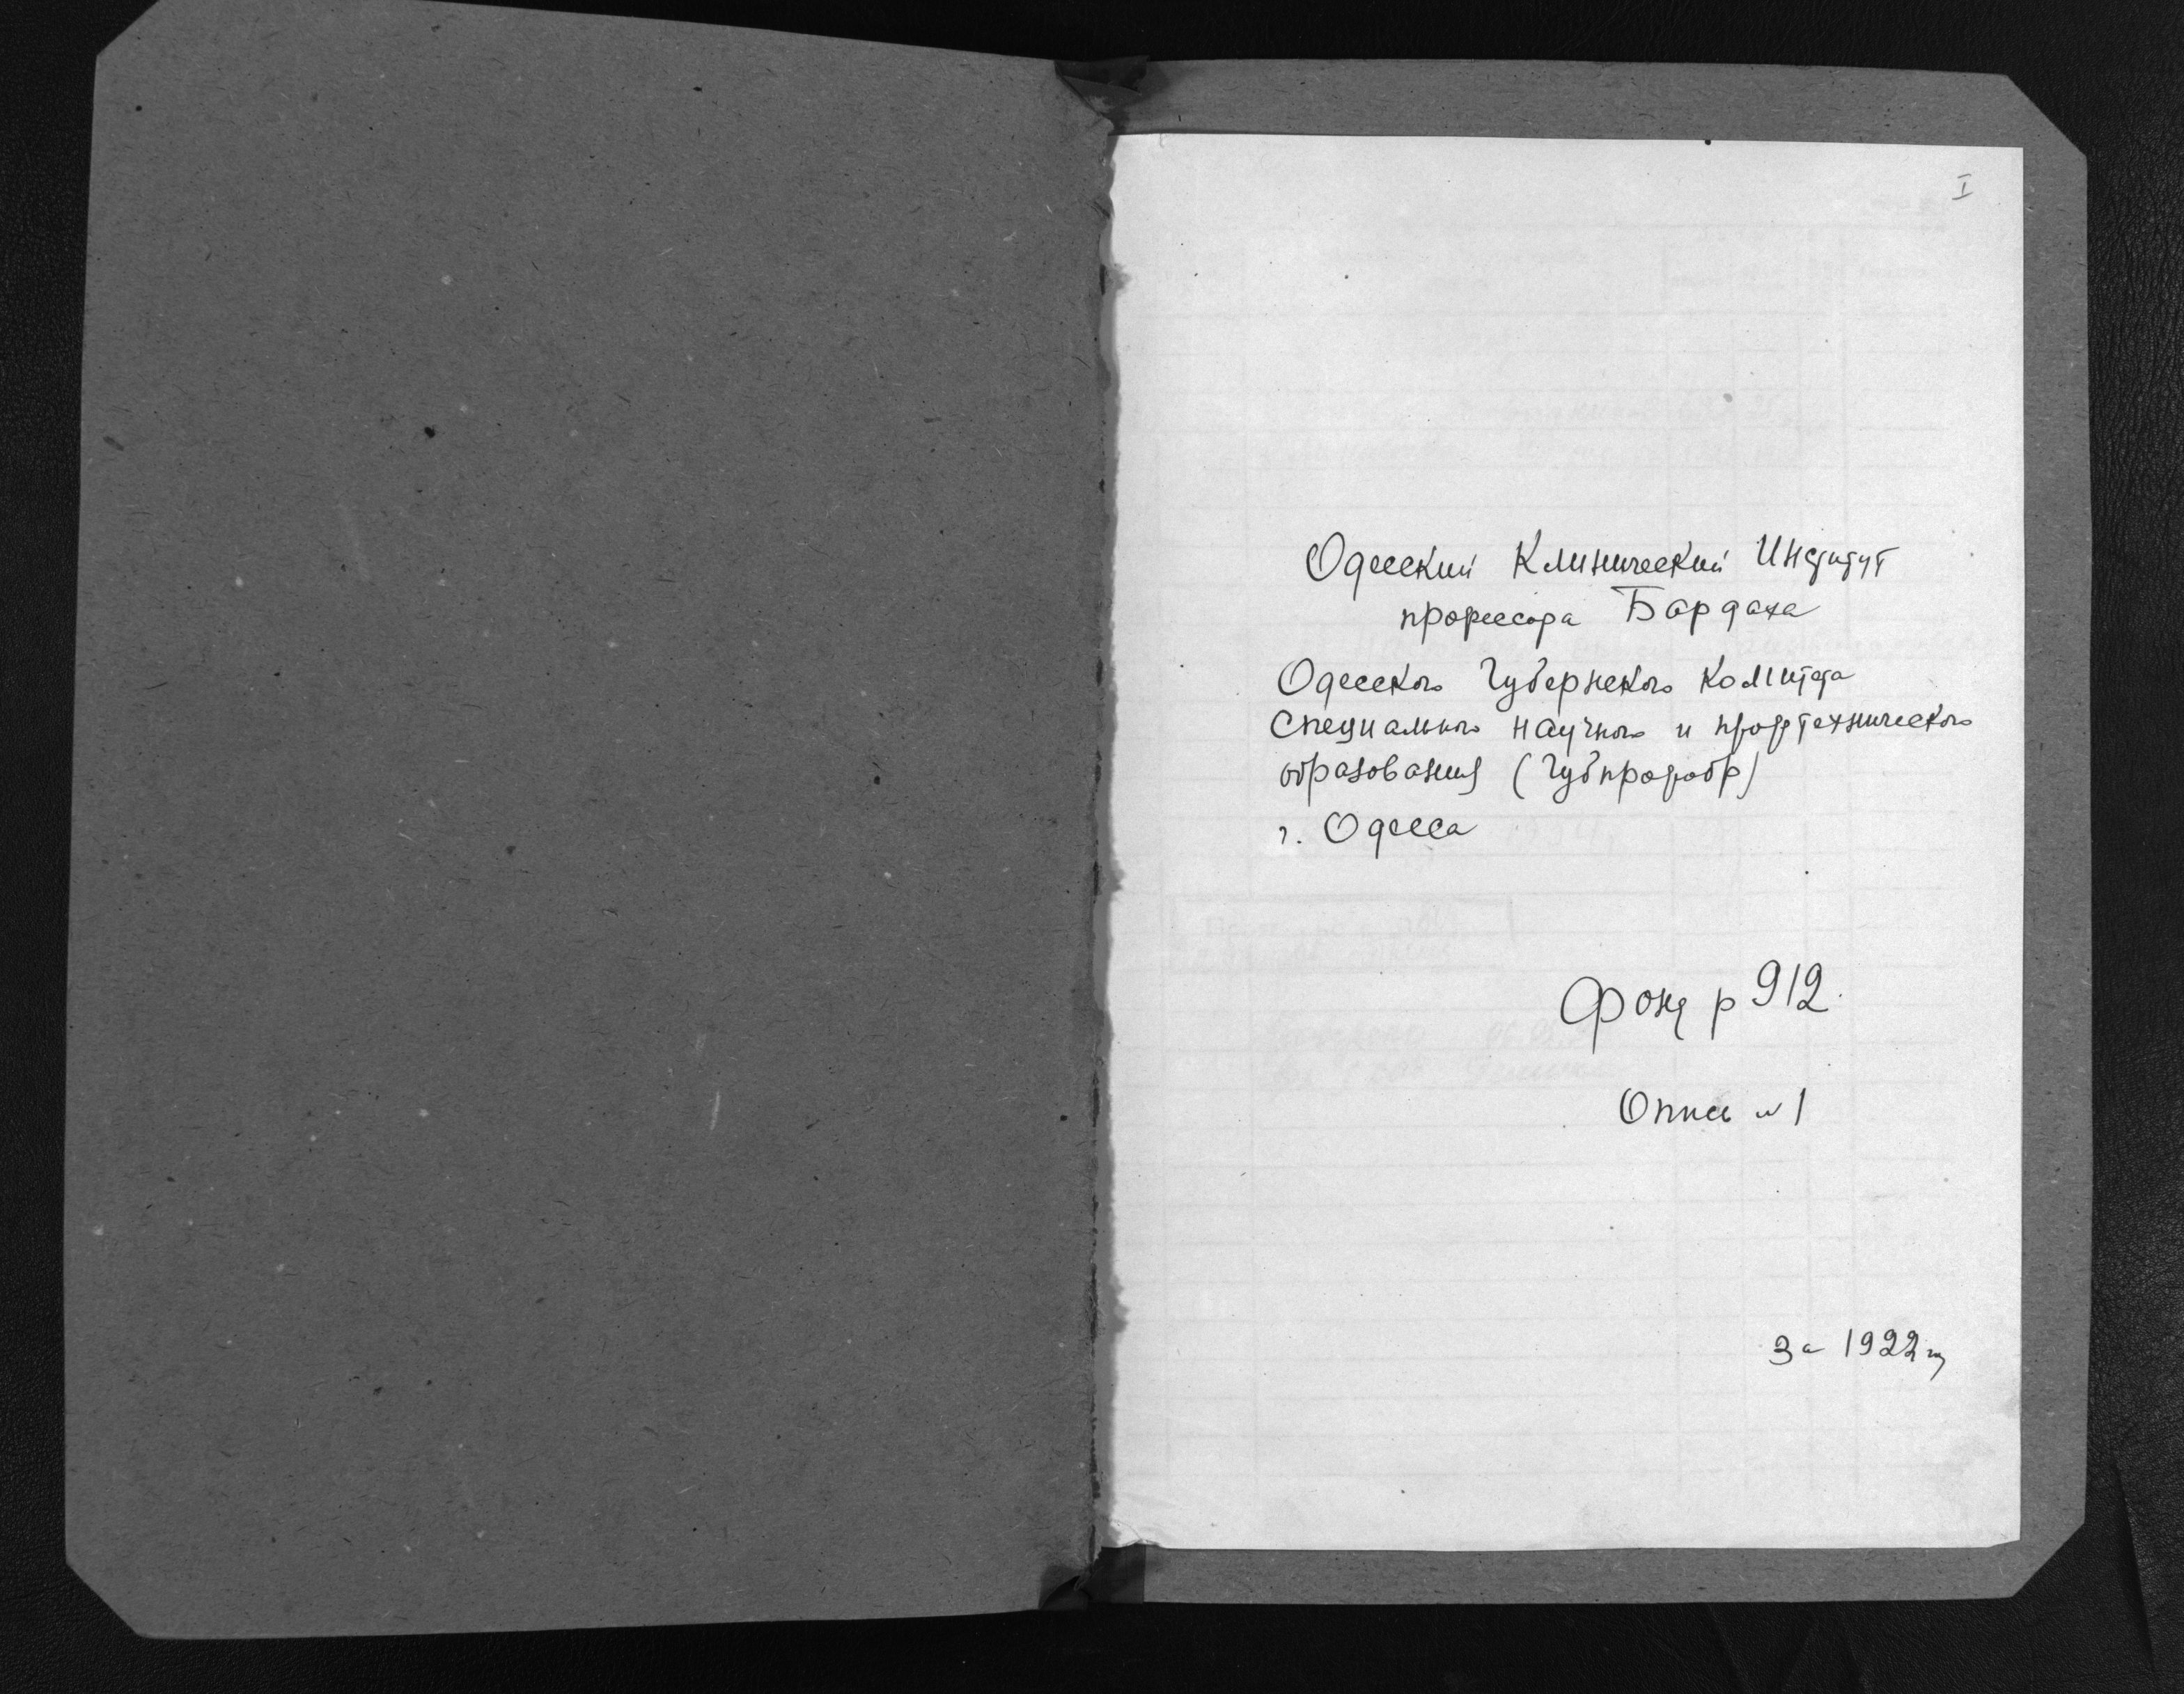 I
Одесский Клинический Институт
профессора Бардаха
Одесского Губернского Комитета
Специального научного и профтехнического
образования (Губпрофобр)
г. Одесса
Фонд р 912.
Опись № 1
За 1922 г.